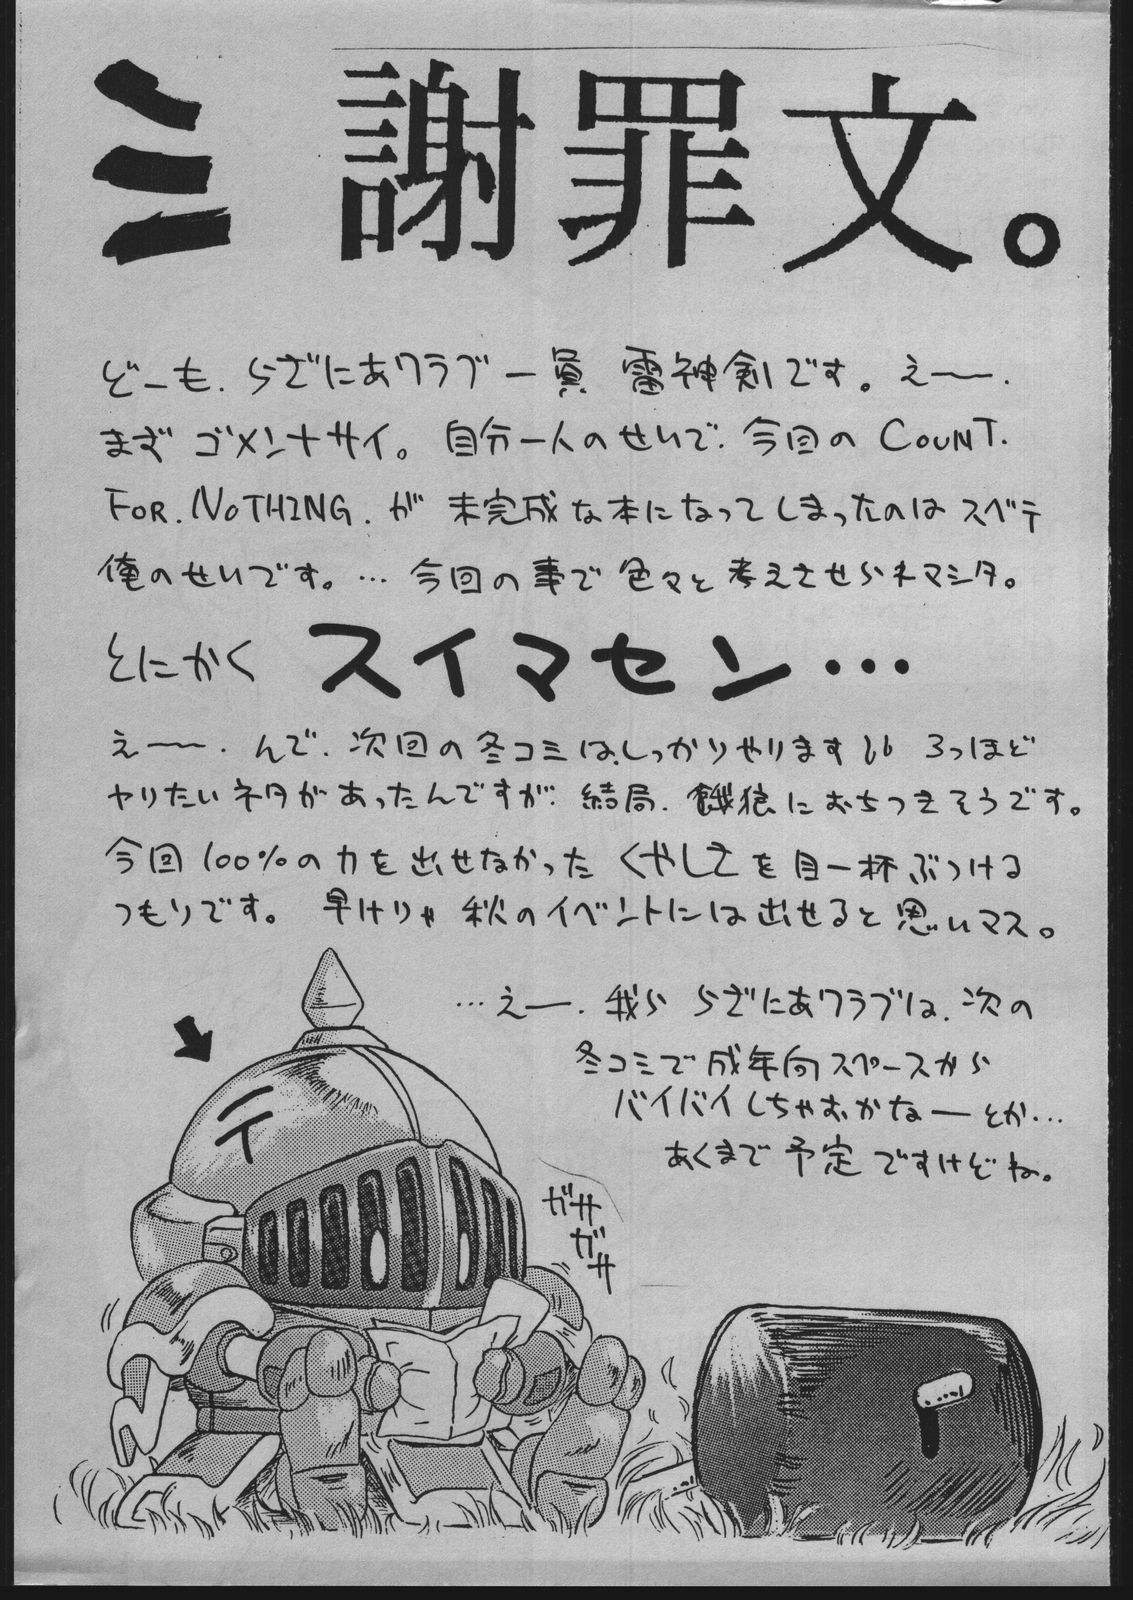 ミ 謝罪文。
どーも、らざにあクラブ一員 雷神剣です。えー〜.
まず ゴメンナサイ。自分一人のせいで、今回の COUNT.
FOR.NOTHING.が 未完成な本になってしまったのは スベテ
俺のせいです。… 今回の事で 色々と 考えさせられマシタ。
とにかく スイマセン…
えー〜. んで、次回の冬コミは、しっかりやります。 3つほど
ヤリたいネタがあったんですが、結局、餓狼におちつきそうです。
今回 100%の力を出せなかった くやしさを 目一杯ぶつける
つもりです。 早けりゃ 秋のイベントには出せると 思いマス。
…えー. 我ら らざにあクラブは、次の
冬コミで 成年向スペースから
バイバイしちゃおかなーとか…
あくまで 予定ですけどね。
ガサ
ガサ